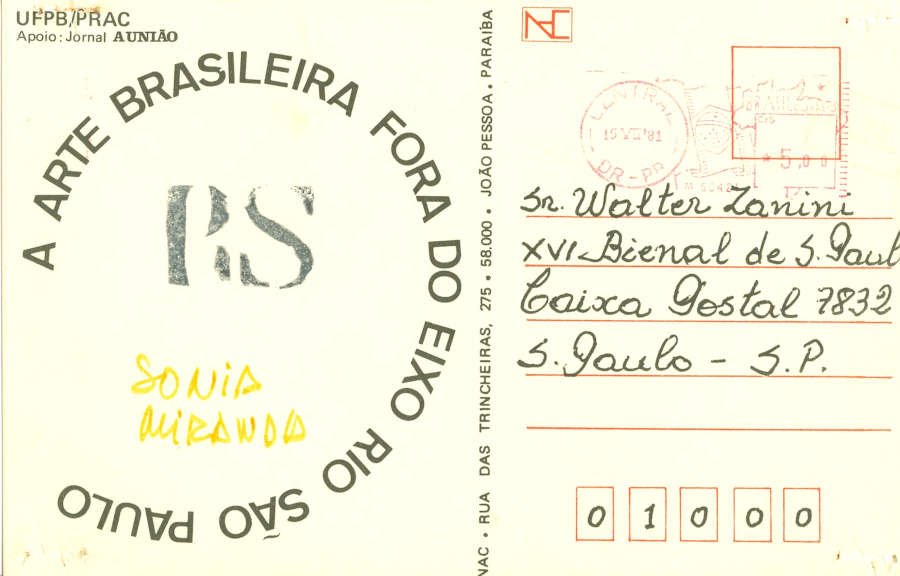 UFPB/PRAC
Apoio: Jornal A UNIÃO
A ARTE BRASILEIRA FORA DO EIXO RIO SÃO PAULO
RS
SONIA
MIRANDA
NAC • RUA DAS TRINCHEIRAS, 275 • 58.000 • JOÃO PESSOA • PARAÍBA
NAC
CENTRAL
15 VII 81
DR-PB
*5,00
Sr. Walter Zanini
XVI Bienal de S. Paul
Caixa Postal 7832
S. Paulo - S.P.
0 1 0 0 0